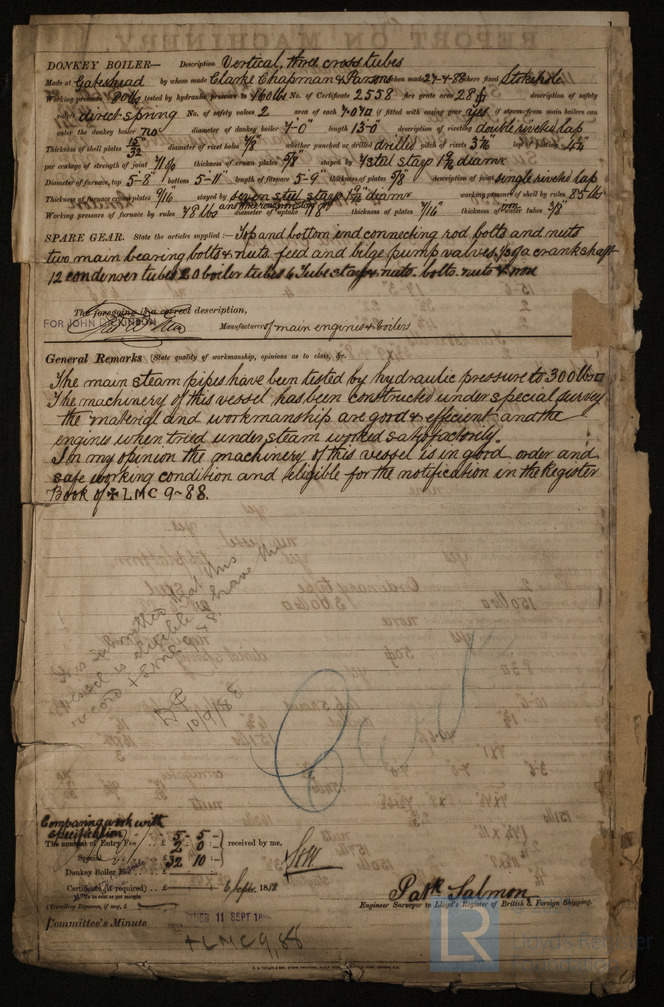 DONKEY BOILER— Description Vertical, three cross tubes
Made at Gateshead by whom made Clarke Chapman & Parsons when made 27-4-88 where fixed Stokehole
Working pressure 80 lbs tested by hydraulic pressure to 160 lbs No. of Certificate 2558 fire grate area 28 description of safety
valves direct spring No. of safety valves 2 area of each 7.070 if fitted with easing gear yes if steam from main boilers can
enter the donkey boiler no diameter of donkey boiler 7'-0" length 13-0 description of riveting double riveted lap
Thickness of shell plates 15/32 diameter of rivet holes whether punched or drilled drilled pitch of rivets lap of plating
per centage of strength of joint thickness of crown plates 5/8" stayed by diamr
Diameter of furnace, top 5-8" bottom 5-11" length of furnace 5-9" thickness of plates 5/8 description of joint single riveted lap
Thickness of furnace crown plates 9/16 stayed by seven steel stays diamr working pressure of shell by rules 85 lbs
Working pressure of furnace by rules 78 lbs diameter of uptake thickness of plates 7/16 thickness of water tubes 3/8"
SPARE GEAR. State the articles supplied:— Top and bottom end connecting rod bolts and nuts
two main bearing bolts & nuts feed and bilge pump valves 1/3 of a crank shaft
12 condenser tubes 20 boiler tubes 6 Tube stays & nuts bolts nuts & iron
The foregoing is a correct description,
FOR JOHN DICKINSON Manufacturer of main engines & boilers
General Remarks (State quality of workmanship, opinions as to class, &c.
The main steam pipes have been tested by hydraulic pressure to 300 lbs
The machinery of this vessel has been constructed under special survey
the material and workmanship are good & efficient and the
engines when tried under steam worked satisfactorily.
In my opinion the machinery of this vessel is in good order and
safe working condition and eligible for the notification in the Register
Book of ✠ LMC 9-88.
It is submitted that this
vessel is eligible to have the
record + LMC 9.88.
10/9/88
Comparing work with
specification 5 - 5 -
The amount of Entry Fee .. £ 2 0 : received by me,
Special .. £ 32 10 :
Donkey Boiler Fee .. £
Certificate (if required) .. £ 6 Sept. 1888
To be sent as per margin.
(Travelling Expenses, if any, £ )
Patk Salmon
Engineer Surveyor to Lloyd's Register of British & Foreign Shipping.
Committee's Minute 11 SEPT 188
+ LMC 9,88
LR Lloyd's Register
Foundation